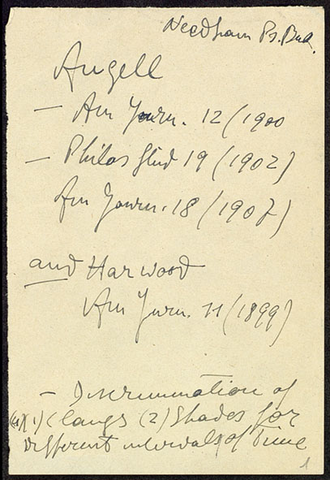 Needham Ps. Bul.
Angell
— Am Journ. 12 (1900
— Philos Stud 19 (1902)
Am Journ. 18 (1907)
and Harwood
Am Journ. 11 (1899)
— Discrimination of
(1) Clangs (2) Shades for
different intervals of Time
1